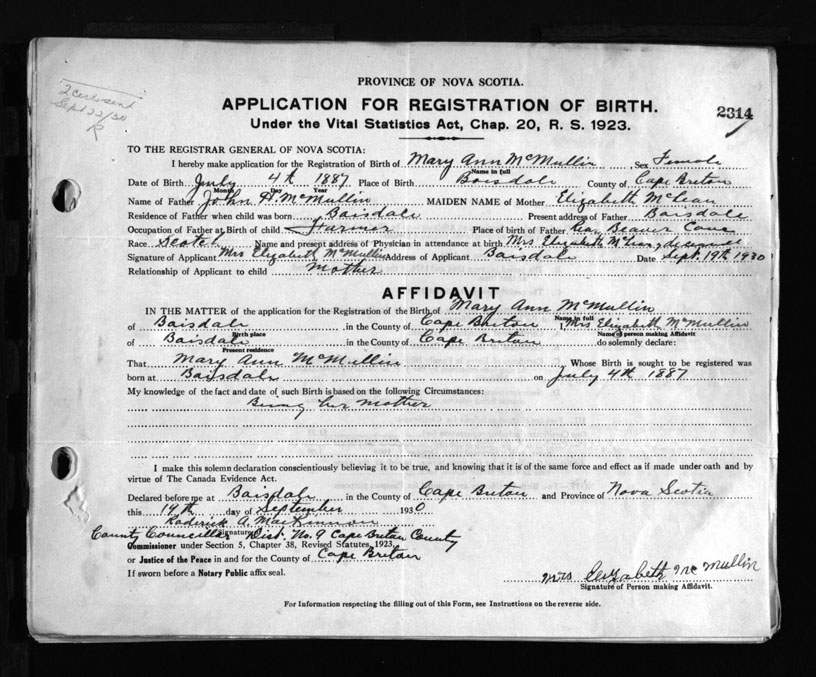 PROVINCE OF NOVA SCOTIA.
APPLICATION FOR REGISTRATION OF BIRTH.
2314
Under the Vital Statistics Act, Chap. 20, R. S. 1923.
Sept 22/30
R
TO THE REGISTRAR GENERAL OF NOVA SCOTIA:
I hereby make application for the Registration of Birth of Mary Ann McMullin Sex Female
Name in full
Date of Birth July 4th 1887 Place of Birth Boisdale County of Cape Breton
Month Day Year
Name of Father John H. McMullin MAIDEN NAME of Mother Elizabeth McLean
Residence of Father when child was born Boisdale Present address of Father Boisdale
Occupation of Father at Birth of child Farmer Place of birth of Father Rear Beaver Cove
Race Scotch Name and present address of Physician in attendance at birth Mrs Elizabeth McLean, deceased
Signature of Applicant Mrs Elizabeth McMullin Address of Applicant Boisdale Date Sept. 19th 1930
Relationship of Applicant to child Mother
AFFIDAVIT
IN THE MATTER of the application for the Registration of the Birth of Mary Ann McMullin
Name in full
of Boisdale in the County of Cape Breton I, Mrs Elizabeth McMullin
Birth place Name of person making Affidavit
of Boisdale in the County of Cape Breton do solemnly declare:
Present residence
That Mary Ann McMullin Whose Birth is sought to be registered was
born at Boisdale on July 4th 1887
My knowledge of the fact and date of such Birth is based on the following Circumstances:
Being her mother
I make this solemn declaration conscientiously believing it to be true, and knowing that it is of the same force and effect as if made under oath and by
virtue of The Canada Evidence Act.
Declared before me at Boisdale in the County of Cape Breton and Province of Nova Scotia
this 19th day of September 1930
Roderick A. MacKinnon
Signature
County Councillor Dist. No. 9 Cape Breton County
Commissioner under Section 5, Chapter 38, Revised Statutes, 1923,
or Justice of the Peace in and for the County of Cape Breton
If sworn before a Notary Public affix seal.
Mrs Elizabeth McMullin
Signature of Person making Affidavit.
For Information respecting the filling out of this Form, see Instructions on the reverse side.